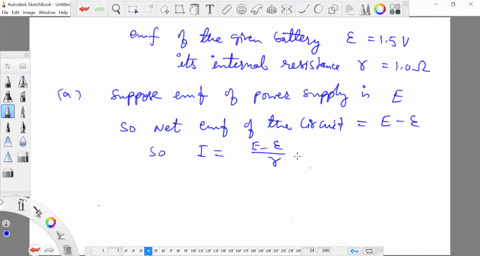 Autodesk SketchBook - Untitled
emf of the given battery ε = 1.5 V
its internal resistance r = 1.0 Ω
(a) suppose emf of power supply is E
so net emf of the circuit = E - ε
so I = (E - ε)/r